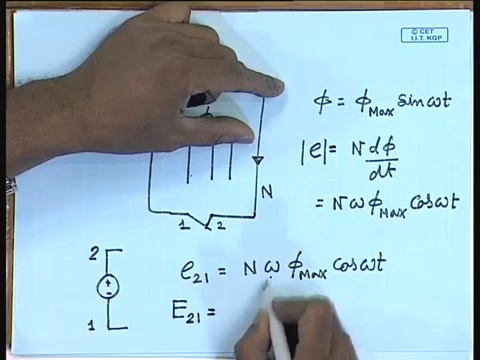 © CET
I.I.T. KGP
φ = φ_Max sin ωt
|e| = N dφ/dt
= N ω φ_Max cos ωt
N
1 2
2
+
-
1
e_21 = N ω φ_Max cos ωt
E_21 =